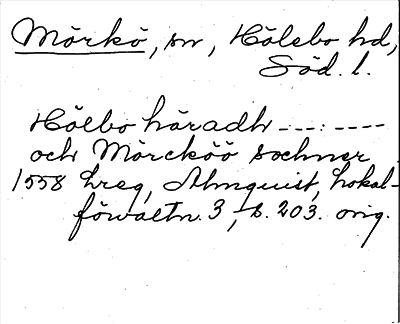 Mörkö, sn, Hölebo hd,
Söd. l.
Hölbo häradh ---:----
och Mörcköö sochner
1558 hreg, Almquist, Lokal-
förvaltn. 3, s. 203. orig.